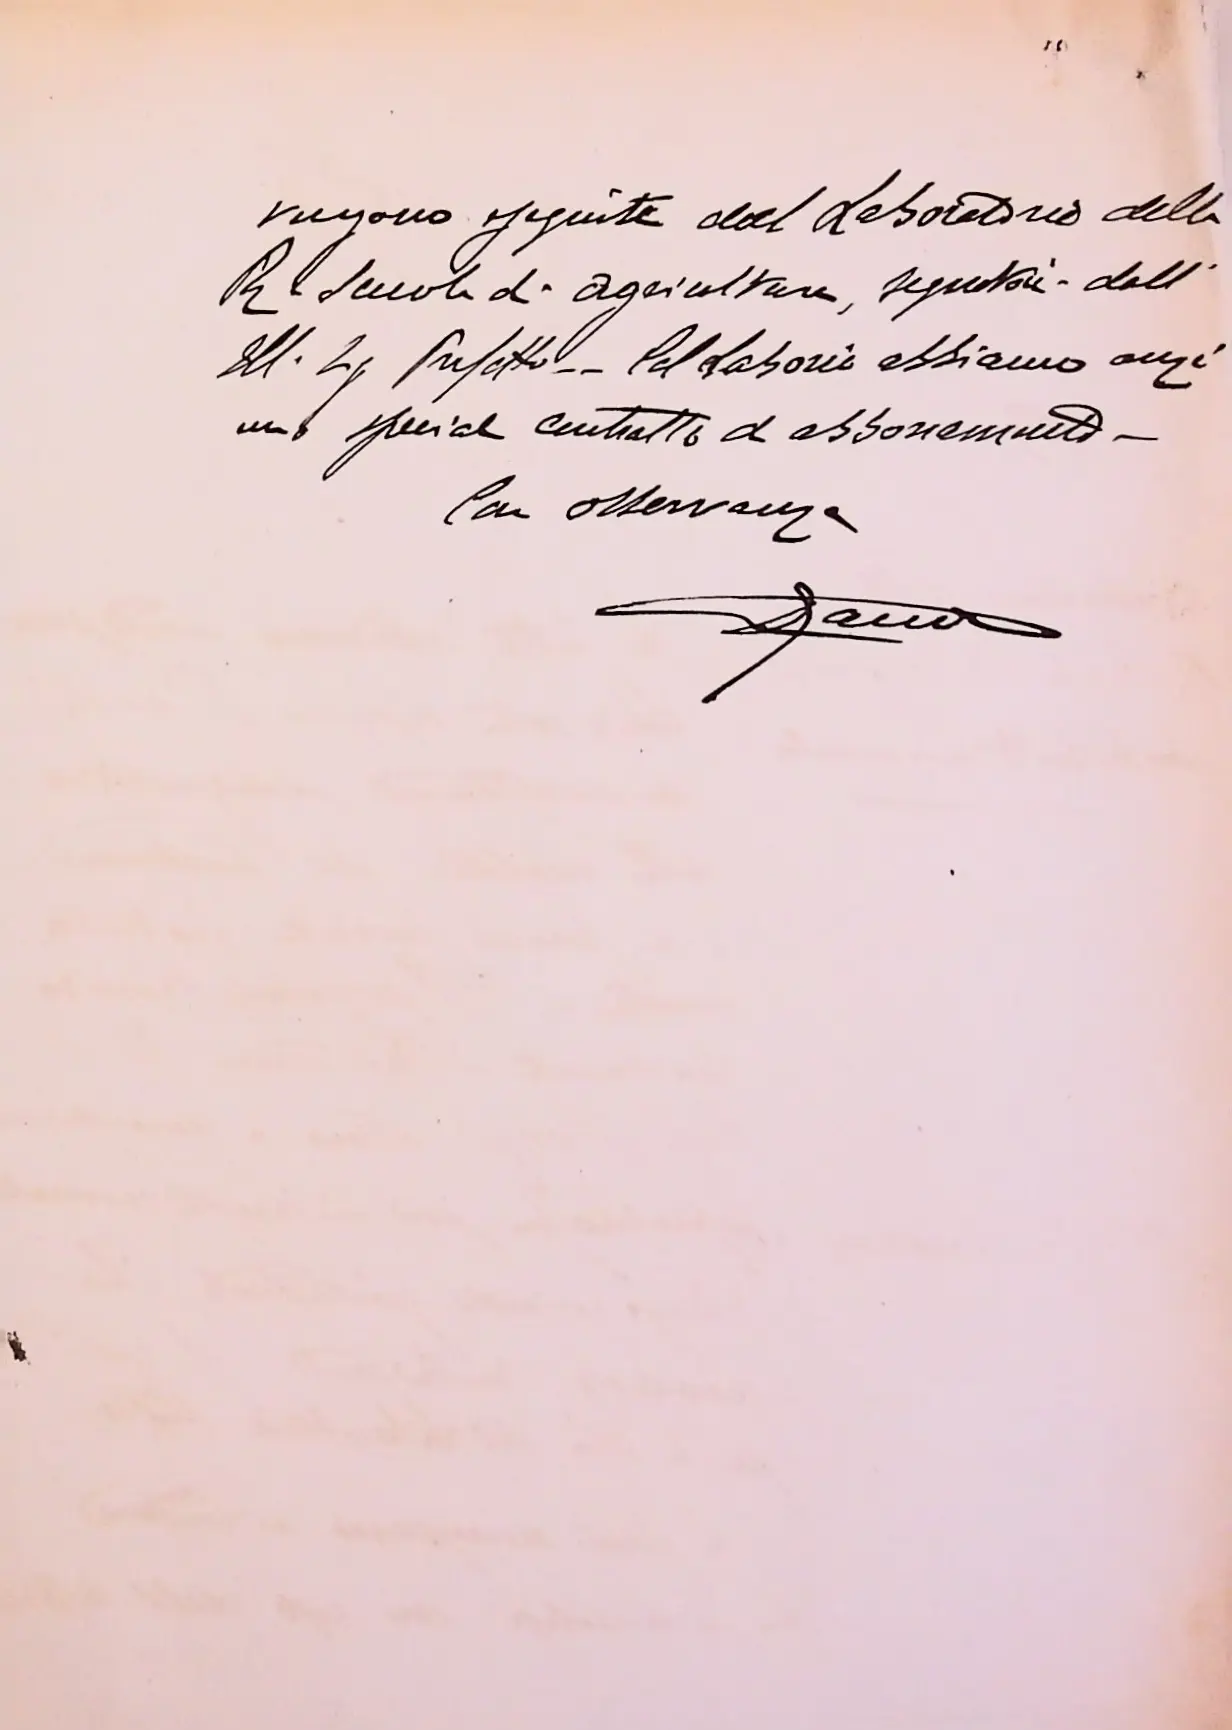 vengono eseguite dal Laboratorio della
R. Scuola di agricoltura, dall'
Ill. Sig Prefetto -- Col Laborio abbiamo anzi
uno special contratto d abbonamento -
Con osservanza